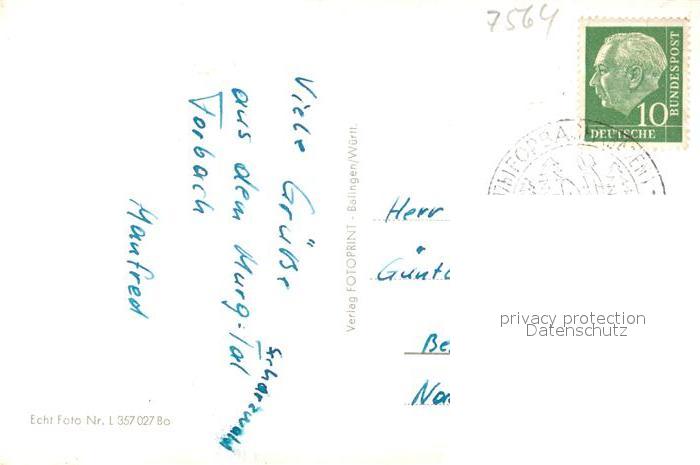 7564
BUNDESPOST
10
DEUTSCHE
Viele Grüße
aus dem Murg-Tal
Schwarzwald
Forbach
Manfred
Verlag FOTOPRINT - Balingen/Württ.
Herr
privacy protection
Datenschutz
Echt Foto Nr. L 357 027 Bo